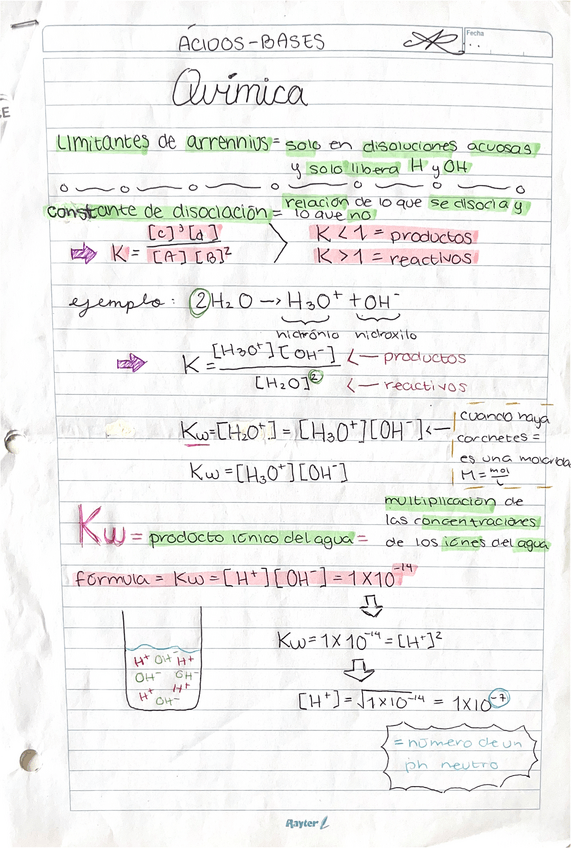 ÁCIDOS-BASES
Fecha
Química
Limitantes de arrennius = solo en disoluciones acuosas
y solo libera H y OH
constante de disociación = relación de lo que se disocia y
lo que no
K = [C]³[d] / [A][B]²
K < 1 = productos
K > 1 = reactivos
ejemplo: 2H₂O → H₃O⁺ + OH⁻
hidrónio hidroxilo
K = [H₃O⁺][OH⁻] / [H₂O]² <— productos
<— reactivos
Kw=[H₂O⁺] = [H₃O⁺][OH⁻] <—
cuando haya
corchetes =
es una molarida
M = mol/L
Kw = [H₃O⁺][OH⁻]
Kw = producto iónico del agua =
multiplicación de
las concentraciones
de los iones del agua
fórmula = Kw = [H⁺][OH⁻] = 1X10⁻¹⁴
Kw = 1X10⁻¹⁴ = [H⁺]²
[H⁺] = √1X10⁻¹⁴ = 1X10⁻⁷
H⁺ OH⁻ H⁺
OH⁻ OH⁻
H⁺ H⁺
OH⁻
= número de un
ph neutro
Rayter